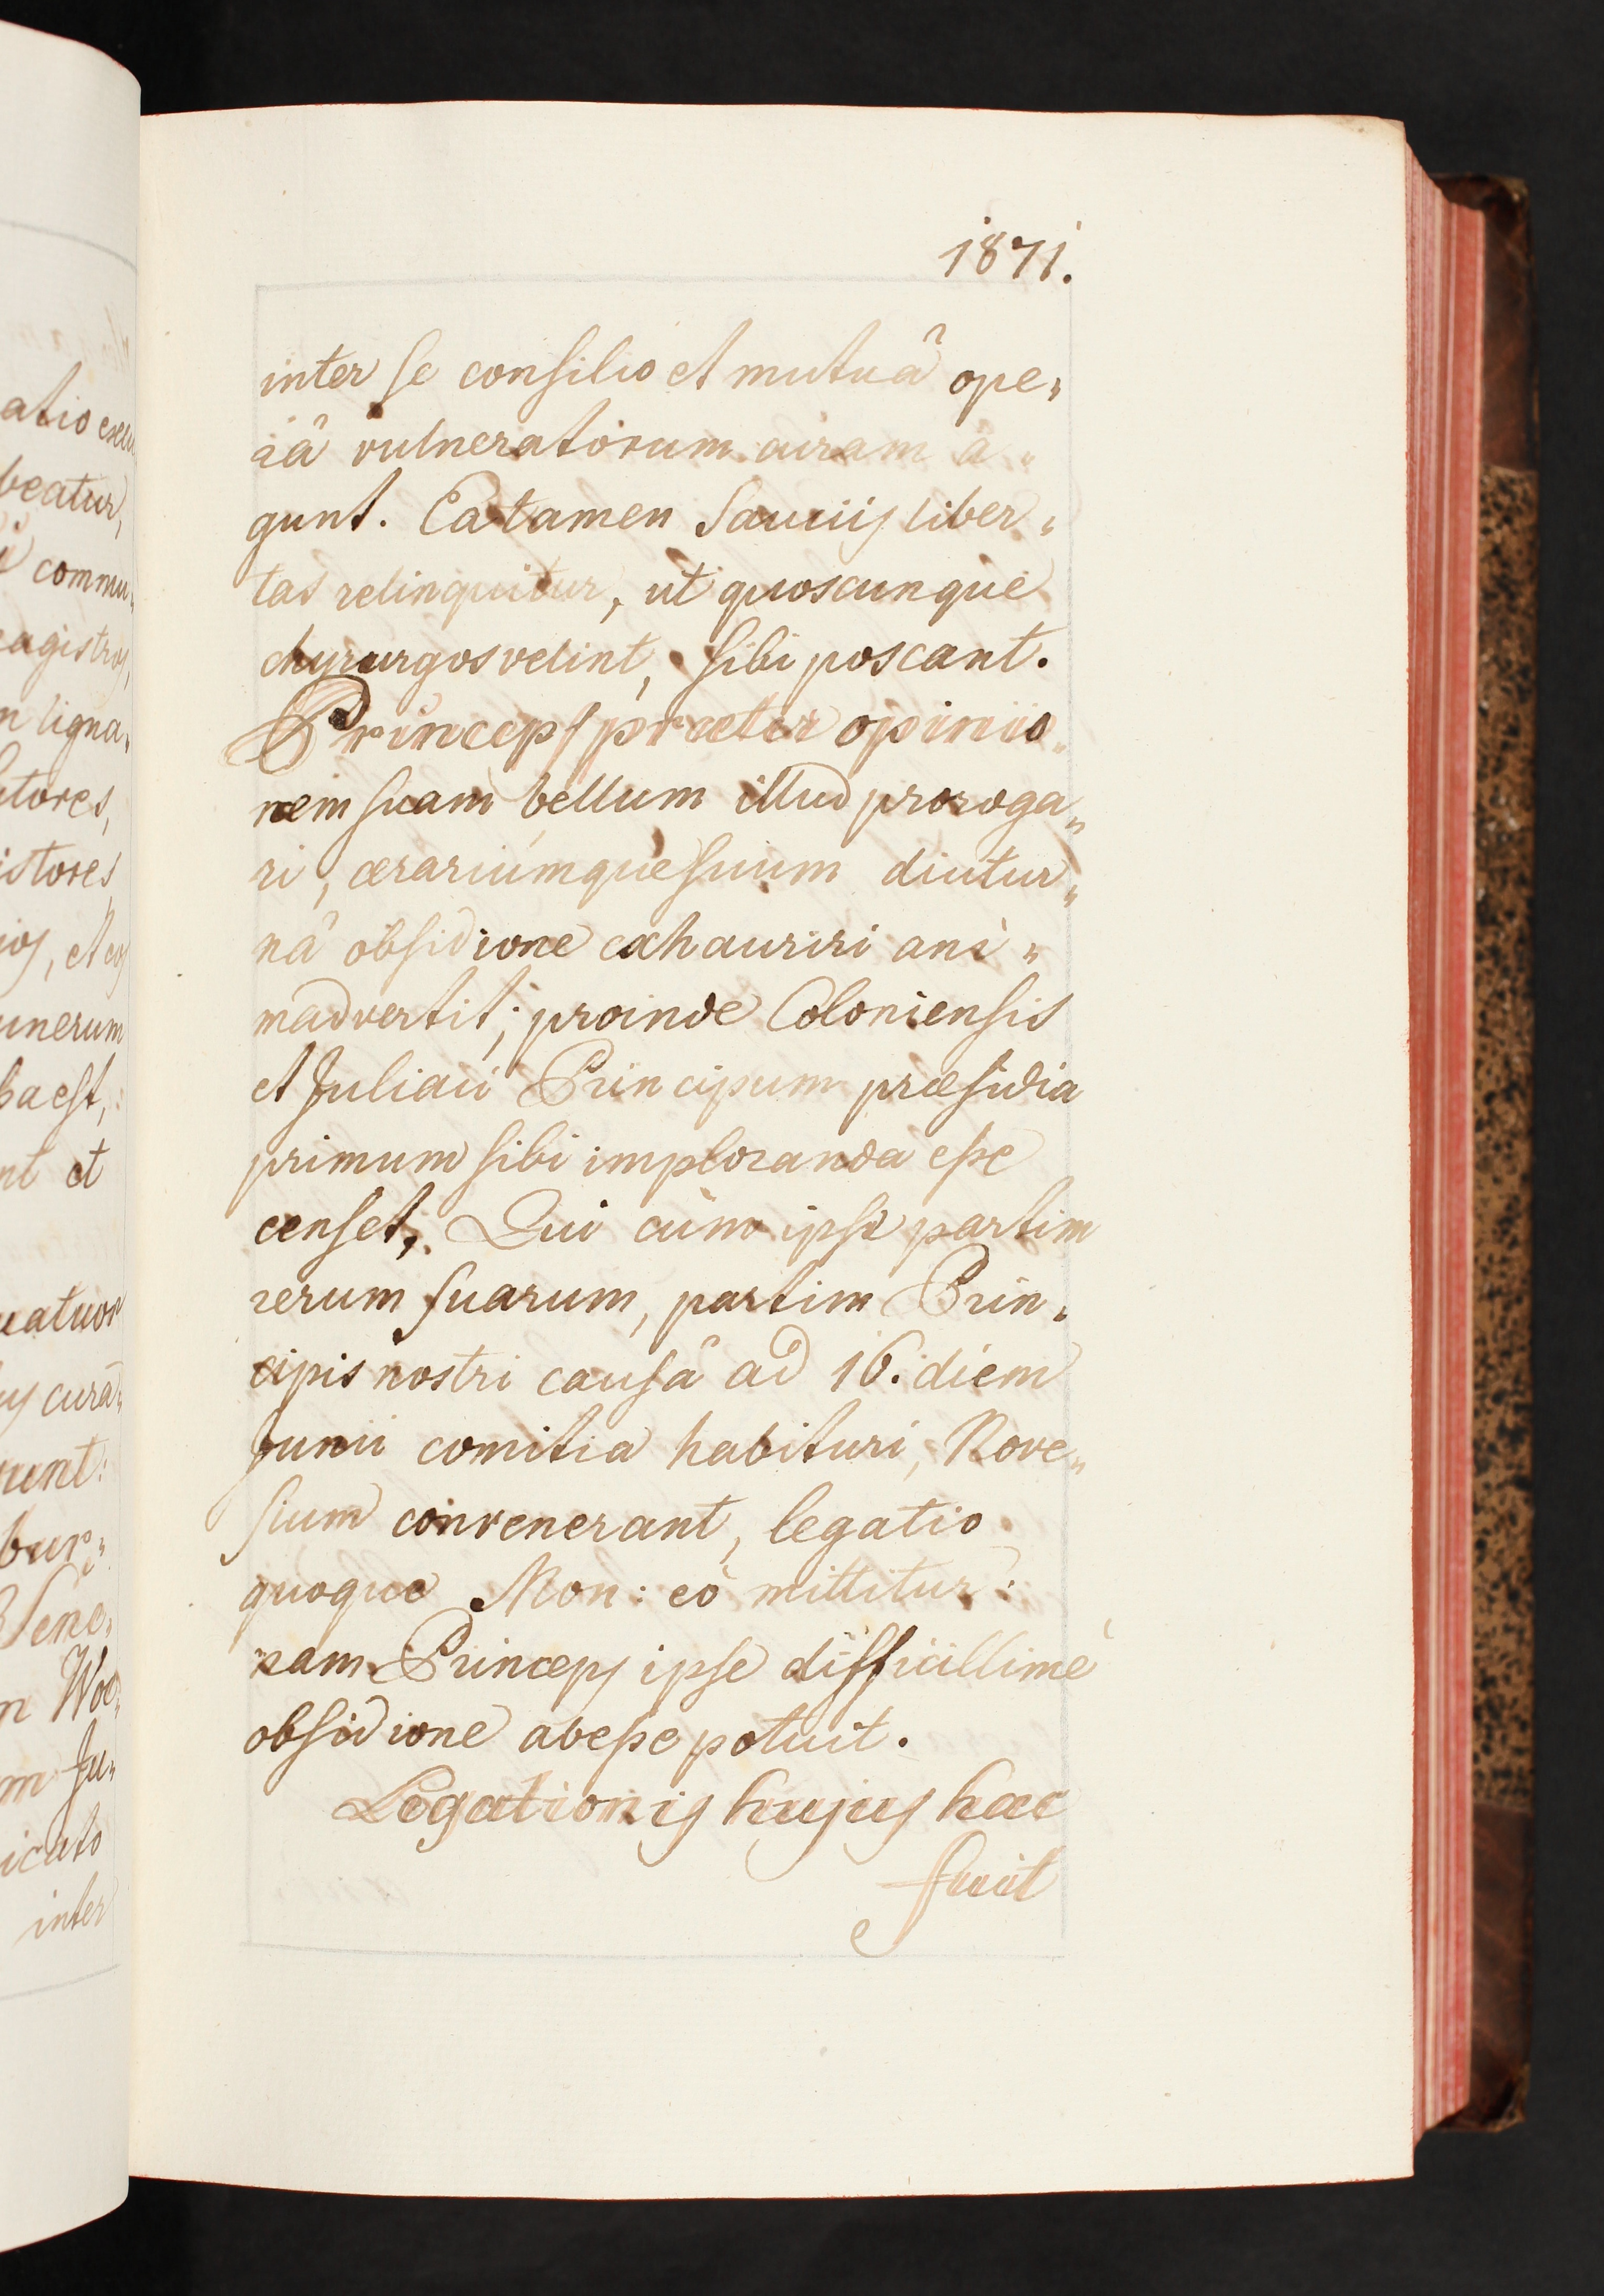 1871.
inter se consilio et mutuâ ope„
râ vulneratorum curam a„
gunt. Ea tamen Sauciis liber„
tas relinquitur, ut quoscunque
chyrurgos velint, sibi poscant.
Princeps præter opinio„
nem suam bellum illud proroga„
ri, ærariumque suum diutur„
nâ obsidione exhauriri ani„
madvertit; proinde Coloniensis
et Juliaci Principum præsidia
primum sibi imploranda esse
censet, Qui cùm ipsi partim
rerum suarum, partim Prin„
cipis nostri causâ ad 16. diem
Junii comitia habituri, Nove„
sium convenerant, legatio
quoque Mon: eò mittitur:
nam Princeps ipse difficillimè
obsidione abesse potuit.
Legationis hujus hæc
fuit
beatur,
commu„
ligna„
unerum
et
cura„
bur„
Woe„
Ju„
inter